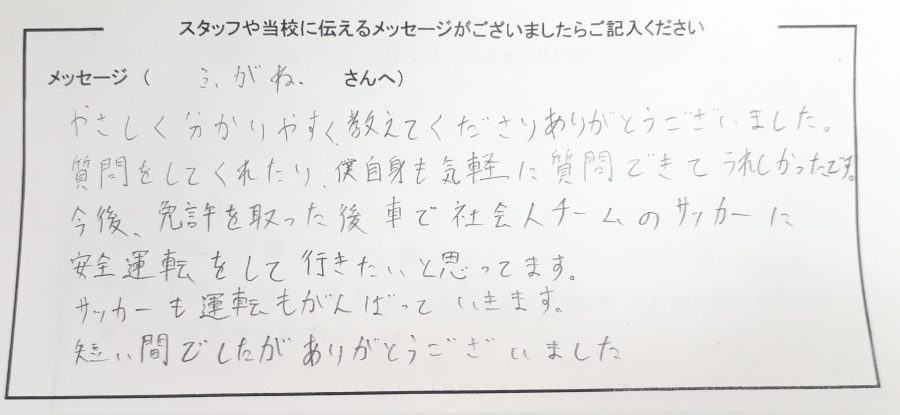 スタッフや当校に伝えるメッセージがございましたらご記入ください
メッセージ（ ふがね. さんへ）
やさしく分かりやすく、教えてくださりありがとうございました。
質問をしてくれたり、僕自身も気軽に質問できてうれしかったです。
今後、免許を取った後車で社会人チームのサッカーに
安全運転をして行きたいと思ってます。
サッカーも運転もがんばっていきます。
短い間でしたがありがとうございました